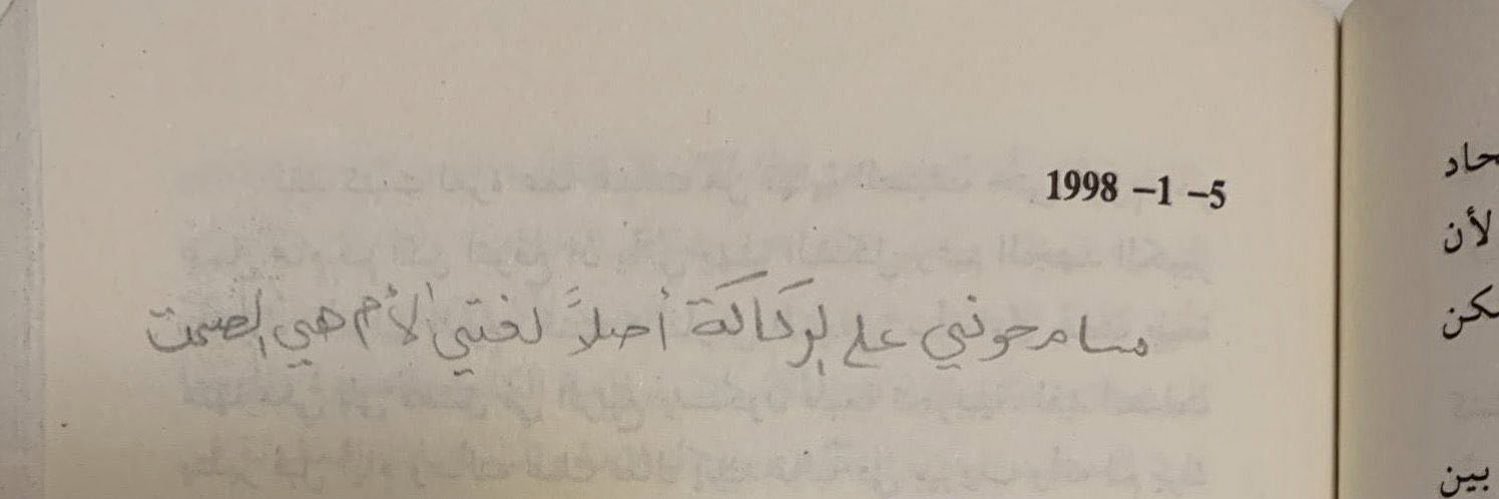 1998 –1 –5
سامحوني على الركاكة أصلاً لغتي الأم هي الصمت
حاد
لأن
مكن
بين